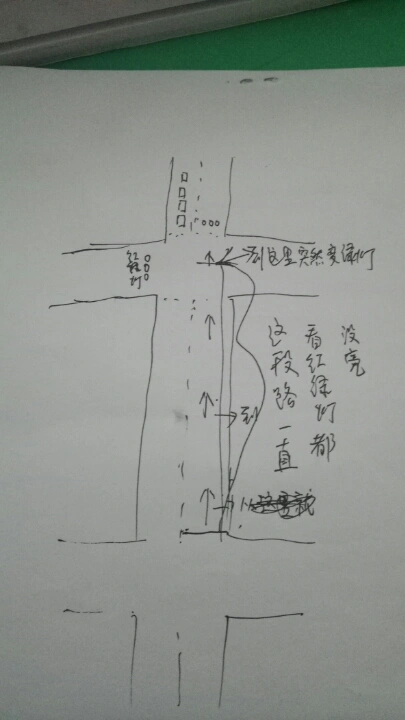 到这里突然变绿灯
红绿灯
这段路一直
看红绿灯都
没亮
到